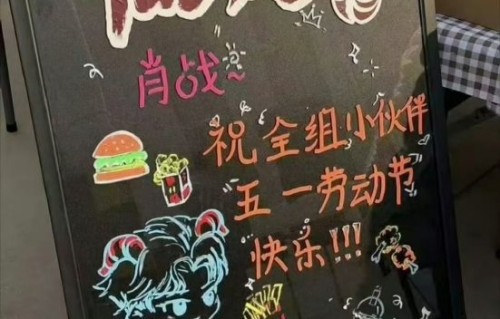 肖战~
祝全组小伙伴
五一劳动节
快乐!!!